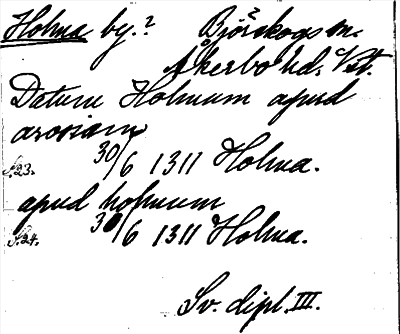 Holma by.? Björskogs sn.
?
Åkerbo hd. Vstl.
Datum Holmum apud
arosiam
S.23. 30/6 1311 Holma.
apud holmum
S.24. 30/6 1311 Holma.
Sv. dipl. III.